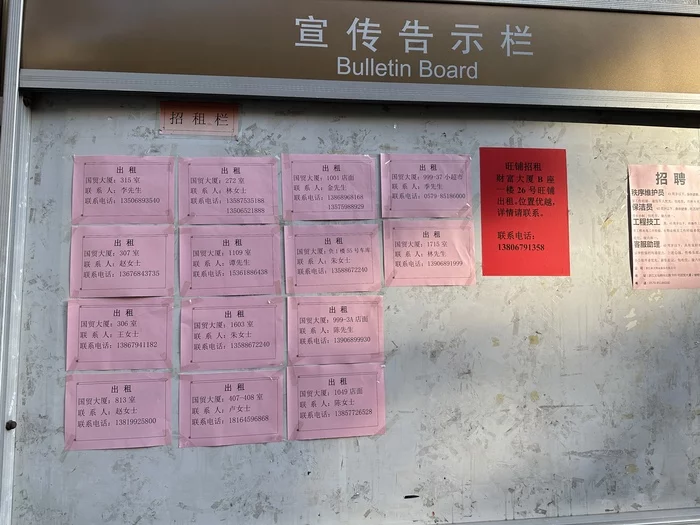 宣传告示栏
Bulletin Board
招租栏
出 租
国贸大厦：315 室
联 系 人：李先生
联系电话：13506893540
出 租
国贸大厦：272 室
联 系 人：林女士
联系电话：13587535188
13506521888
出 租
国贸大厦：1001 店面
联 系 人：金先生
联系电话：13868968168
13575988929
出 租
国贸大厦：999-37 小超市
联 系 人：季先生
联系电话：0579-85186000
出 租
国贸大厦：307 室
联 系 人：赵女士
联系电话：13676843735
出 租
国贸大厦：1109 室
联 系 人：谭先生
联系电话：15361886438
出 租
联 系 人：朱女士
联系电话：13588672240
出 租
国贸大厦：1715 室
联 系 人：林先生
联系电话：13906891999
出 租
国贸大厦：306 室
联 系 人：王女士
联系电话：13867941182
出 租
国贸大厦：1603 室
联 系 人：朱女士
联系电话：13588672240
出 租
国贸大厦：999-3A 店面
联 系 人：陈先生
联系电话：13906899930
出 租
国贸大厦：813 室
联 系 人：赵女士
联系电话：13819925800
出 租
国贸大厦：407-408 室
联 系 人：卢女士
联系电话：18164596868
出 租
国贸大厦：1049 店面
联 系 人：陈女士
联系电话：13857726528
旺铺招租
财富大厦 B 座
一楼 26 号旺铺
出租，位置优越，
详情请联系。
联系电话：
13806791358
招 聘
秩序维护员
保洁员
工程技工
客服助理